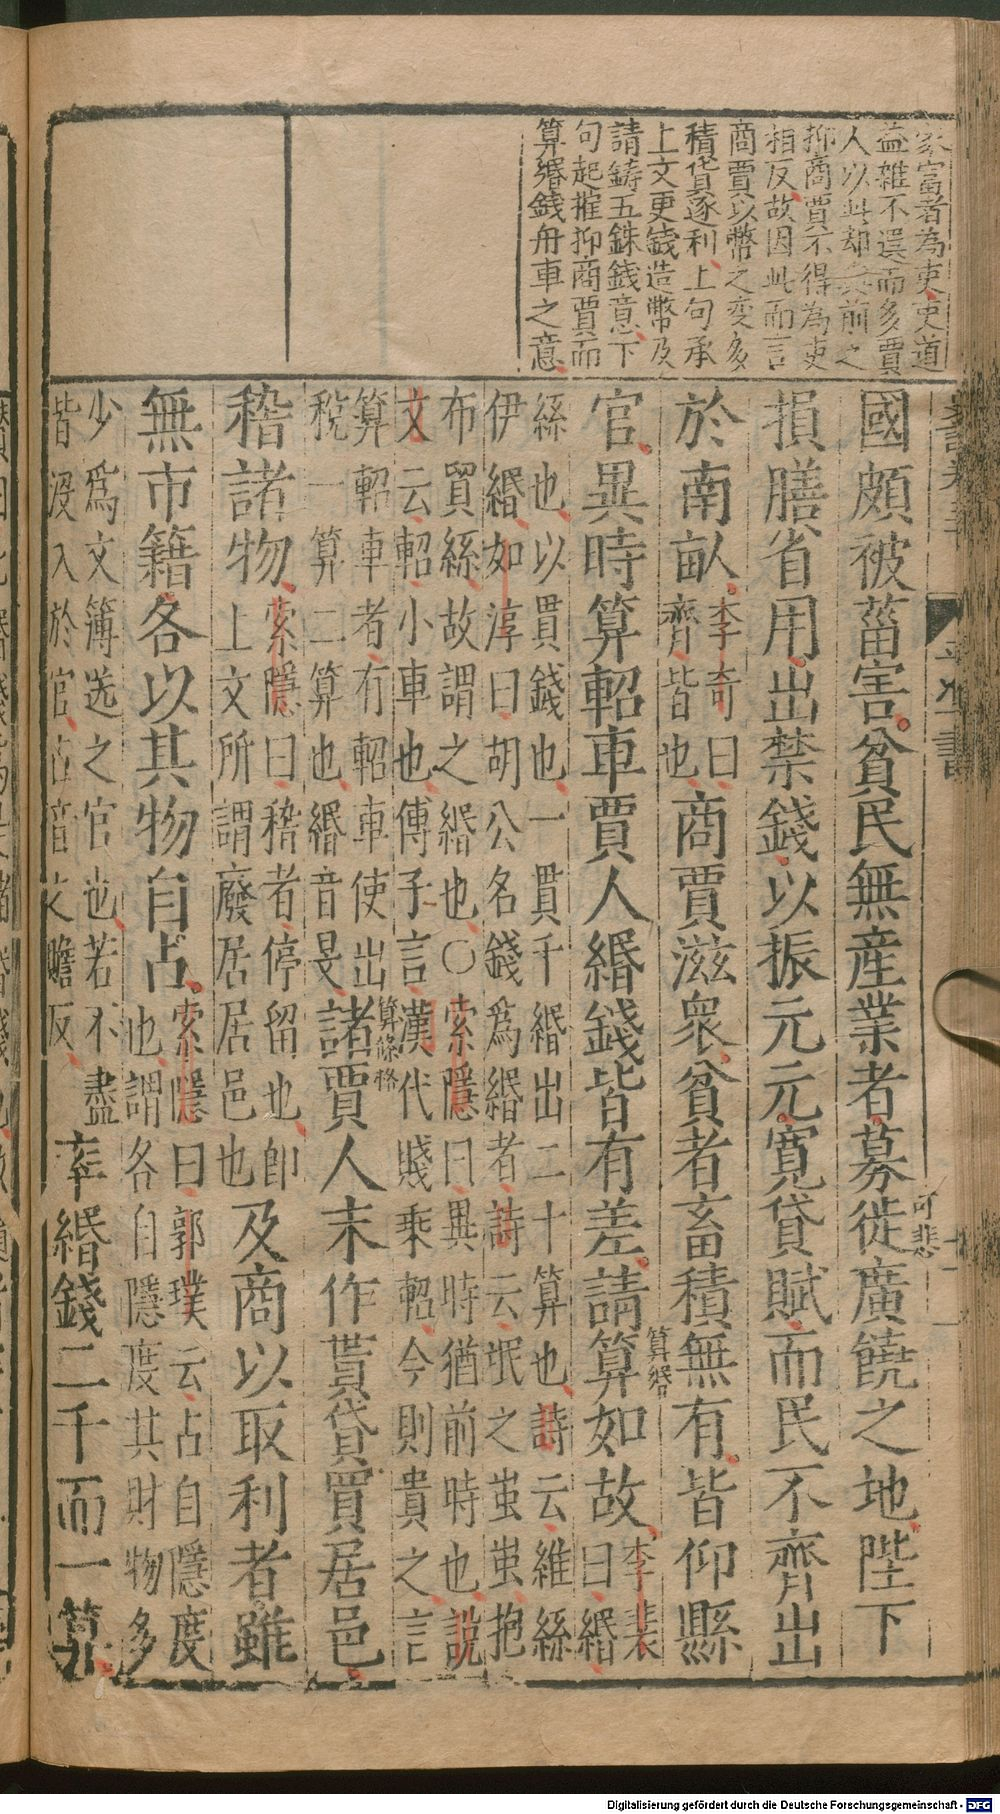 家富者為吏吏道
益雜不選而多賈
人以此却與前之
抑商賈不得為吏
相反故因此而言
商賈以幣之変多
積貨逐利上句承
上文更錢造幣及
請鋳五銖錢意下
句起摧抑商賈而
算緡錢舟車之意
國頗被菑害貧民無産業者募徙廣饒之地陛下
可悲
損膳省用出禁錢以振元元寛貸賦而民不齊出
於南畝李奇曰齊皆也商賈滋衆貧者畜積無有皆仰縣
算緡
官異時算軺車賈人緡錢皆有差請算如故李斐曰緡
絲也以貫錢也一貫千緡出二十算也詩云維絲
伊緡如淳曰胡公名錢爲緡者詩云氓之蚩蚩抱
布貿絲故謂之緡也〇索隱曰異時猶前時也說
文云軺小車也傅子言漢代賤乘軺今則貴之言
算軺車者有軺車使出
稅一算二算也緡音旻諸賈人末作貰貸買居邑
算條格
稽諸物索隱曰稽者停留也即上文所謂廢居居邑也及商以取利者雖
無市籍各以其物自占索隱曰郭璞云占自隱度也謂各自隱度其財物多
少爲文簿送之官也若不盡
皆没入於官占音之贍反率緡錢二千而一算
Digitalisierung gefördert durch die Deutsche Forschungsgemeinschaft - DFG